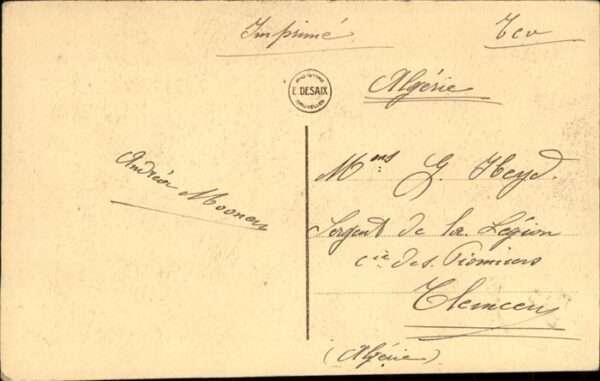 Imprimé
Tcv
E. DESAIX
BRUXELLES
Algérie
Andréa Moonen
Mons G. Heyd.
Sergent de la Légion
Cie des Pionniers
Tlemcen
(Algérie)